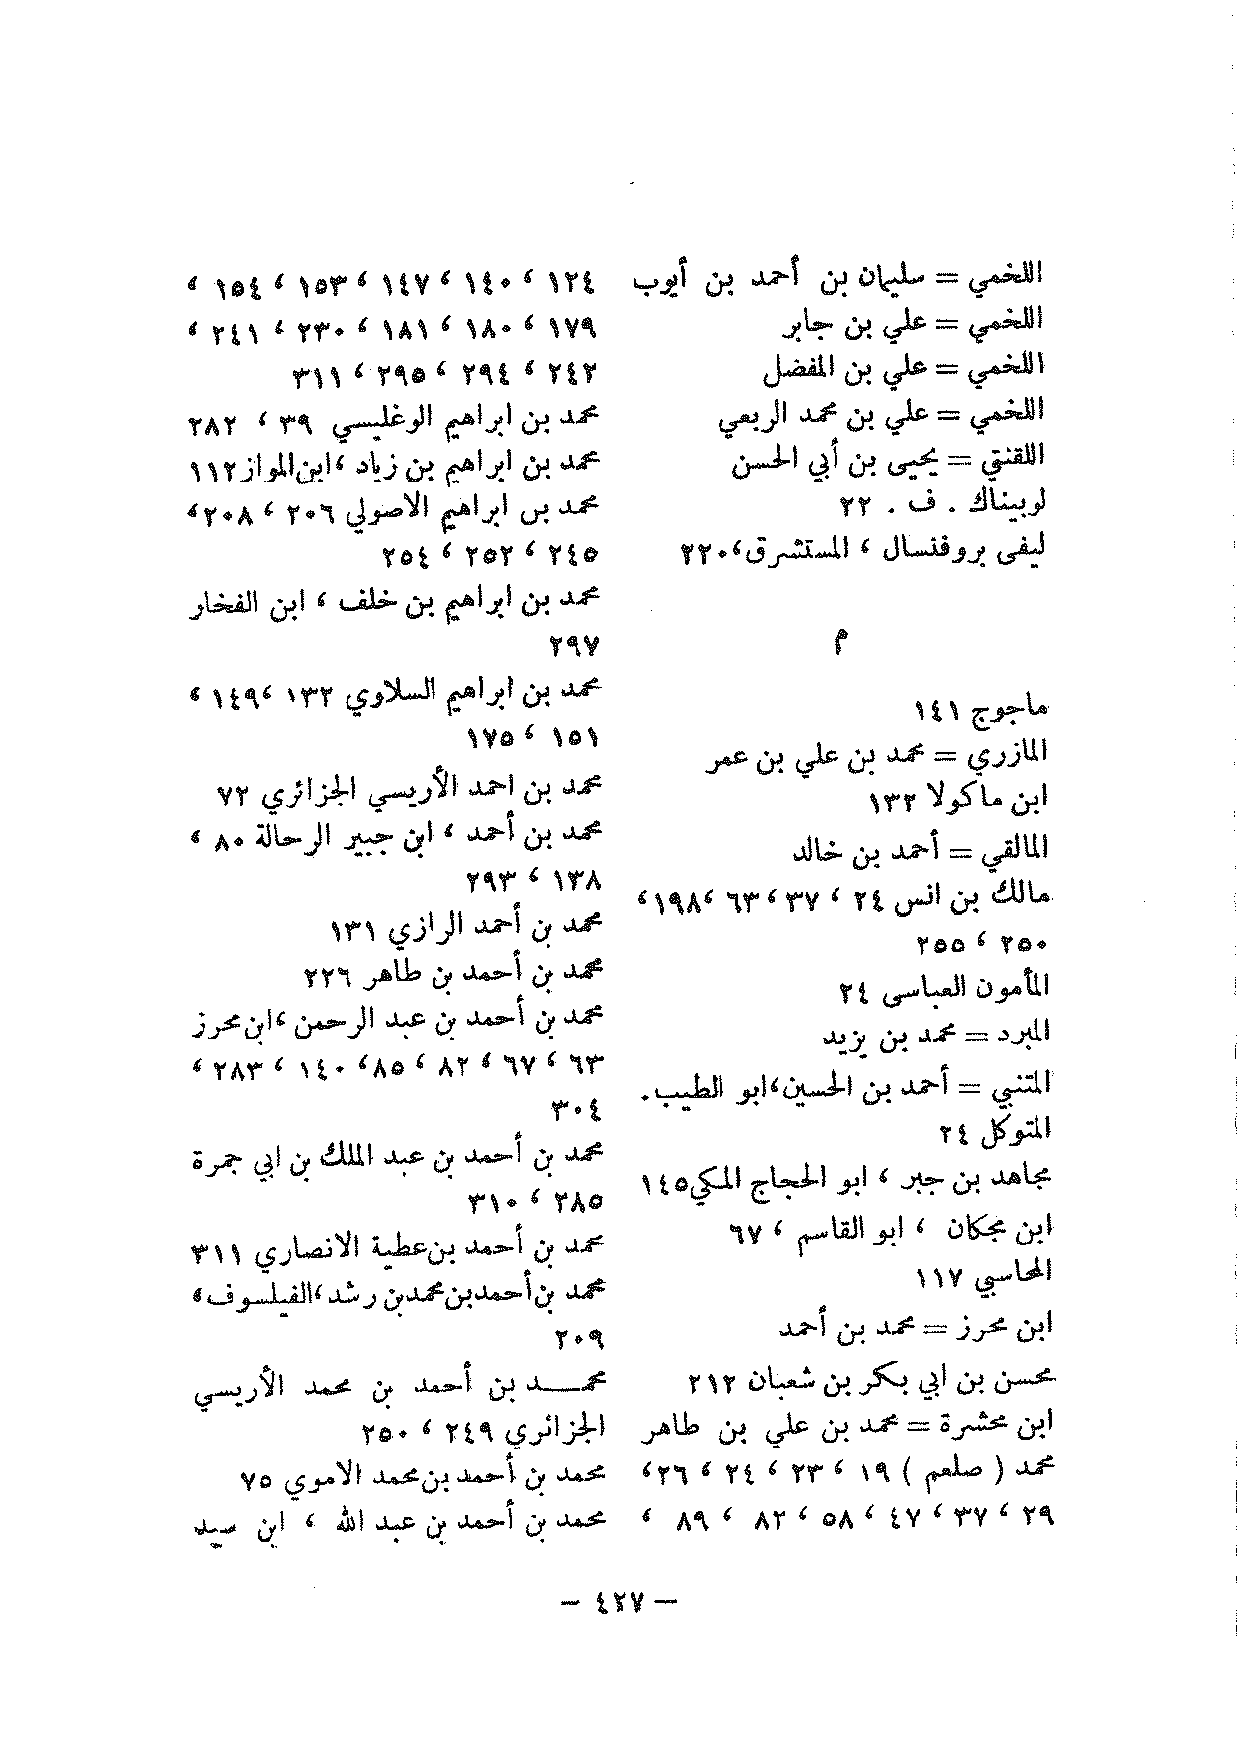 اللخمي = سليمان بن أحمد بن أيوب
اللخمي = علي بن جابر
اللخمي = علي بن المفضل
اللخمي = علي بن محمد الربعي
اللقنتي = يحيى بن أبي الحسن
لوبيناك . ف . ٢٢
ليفى بروفنسال ، المستشرق،٢٢٠
م
ماجوج ١٤١
المازري = محمد بن علي بن عمر
ابن ماكولا ١٣٢
المالقي = أحمد بن خالد
مالك بن انس ٢٤ ، ٣٧ ، ٦٣ ،١٩٨،
٢٥٠ ، ٢٥٥
المأمون العباسى ٢٤
المبرد = محمد بن يزيد
المتنبي = أحمد بن الحسين،ابو الطيب.
المتوكل ٢٤
مجاهد بن جبر ، ابو الحجاج المكي١٤٥
ابن مجكان ، ابو القاسم ، ٦٧
المحاسبي ١١٧
ابن محرز = محمد بن أحمد
محسن بن ابي بكر بن شعبان ٢١٢
ابن محشرة = محمد بن علي بن طاهر
محمد ( صلعم ) ١٩ ، ٢٣ ، ٢٤ ، ٢٦،
٢٩ ، ٣٧ ، ٤٧ ، ٥٨ ، ٨٢ ، ٨٩ ،
١٢٤ ، ١٤٠ ، ١٤٧ ، ١٥٣ ، ١٥٤ ،
١٧٩ ، ١٨٠ ، ١٨١ ، ٢٣٠ ، ٢٤١ ،
٢٤٢ ، ٢٩٤ ، ٢٩٥ ، ٣١١
محمد بن ابراهيم الوغليسي ٣٩ ، ٢٨٢
محمد بن ابراهيم بن زياد ،ابن المواز١١٢
محمد بن ابراهيم الاصولي ٢٠٦ ، ٢٠٨،
٢٤٥ ، ٢٥٢ ، ٢٥٤
محمد بن ابراهيم بن خلف ، ابن الفخار
٢٩٧
محمد بن ابراهيم السلاوي ١٣٢ ،١٤٩ ،
١٥١ ، ١٧٥
محمد بن احمد الأريسي الجزائري ٧٢
محمد بن أحمد ، ابن جبير الرحالة ٨٠ ،
١٣٨ ، ٢٩٣
محمد بن أحمد الرازي ١٣١
محمد بن أحمد بن طاهر ٢٢٦
محمد بن أحمد بن عبد الرحمن ،ابن محرز
٦٣ ، ٦٧ ، ٨٢ ، ٨٥، ١٤٠ ، ٢٨٣ ،
٣٠٤
محمد بن أحمد بن عبد الملك بن ابي جمرة
٢٨٥ ، ٣١٠
محمد بن أحمد بن عطية الانصاري ٣١١
محمد بن أحمد بن محمد بن رشد ،الفيلسوف،
٢٠٩
محمد بن أحمد بن محمد الأريسي
الجزائري ٢٤٩ ، ٢٥٠
محمد بن أحمد بن محمد الاموي ٧٥
محمد بن أحمد بن عبد الله ، ابن سيد
– ٤٢٧ –